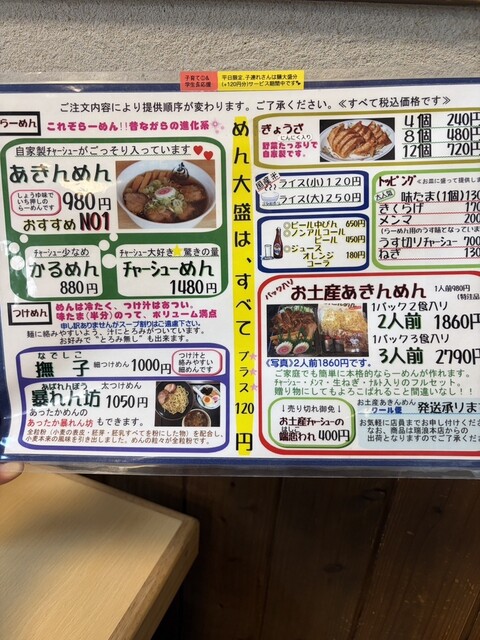 子育てQ&
学生長応援
平日限定、子連れさんは麺大盛分
(+120円分)サービス期間中です
ご注文内容により提供順序が変わります。ご了承ください。≪すべて税込価格です≫
らーめん
これぞらーめん!!昔ながらの進化系
自家製チャーシューがごっそり入っています
あきんめん
しょうゆ味で
いち押しの
らーめんです
980円
おすすめNO1
チャーシュー少なめ
かるめん
880円
チャーシュー大好き 驚きの量
チャーシューめん
1480円
つけめん
めんは冷たく、つけ汁はあつい。
味たま(半分)のって、ボリューム満点
申し訳ありませんがスープ割りはご遠慮下さい。
麺に絡みやすいよう、汁にとろみがついています。
お好みで"とろみ無し"も出来ます。
なでしこ
撫子 細つけめん 1000円
つけ汁と
絡みやすい
細めんです
あばれんぼう
暴れん坊 太つけめん 1050円
あったかめんの
あったか暴れん坊もできます。
全粒粉(小麦の表皮・胚芽・胚乳すべてを粉にした物)を配合し、
小麦本来の風味を引き出しました。めんの粒々が全粒粉です。
めん大盛は、すべてプラス120円
ぎょうざ
にんにく入り
野菜たっぷりで
自家製です。
4個 240円
8個 480円
12個 720円
国産米
ライス(小)120円
ライス(大)250円
ビール中びん 650円
ノンアルコール
ビール 450円
ジュース
オレンジ 180円
コーラ
トッピング
<お皿に盛って提供しま
大人気
味たま(1個)130
きくらげ 170
メンマ 200
(らーめん用のうす味となっていま
うす切りチャーシュー 700
ねぎ 130
パックハリ
お土産あきんめん
1人前980円
(特注品
1パック2食入り
2人前 1860円
1パック3食入り
3人前 2790円
《写真》2人前1860円です。
ご家庭でも簡単に本格的ならーめんが作れます。
チャーシュー・メンマ・生ねぎ・ナルト入りのフルセット。
贈り物にしてもよろこばれること間違いなし!!
!売り切れ御免!
お土産チャーシューの
はしこ
端恋われ400円
お土産あきんめん
クール便
発送承りま
お気軽に店員までお申し付けくださ
なお、商品は瑞浪本店からの
出荷となりますのでご了承くださ